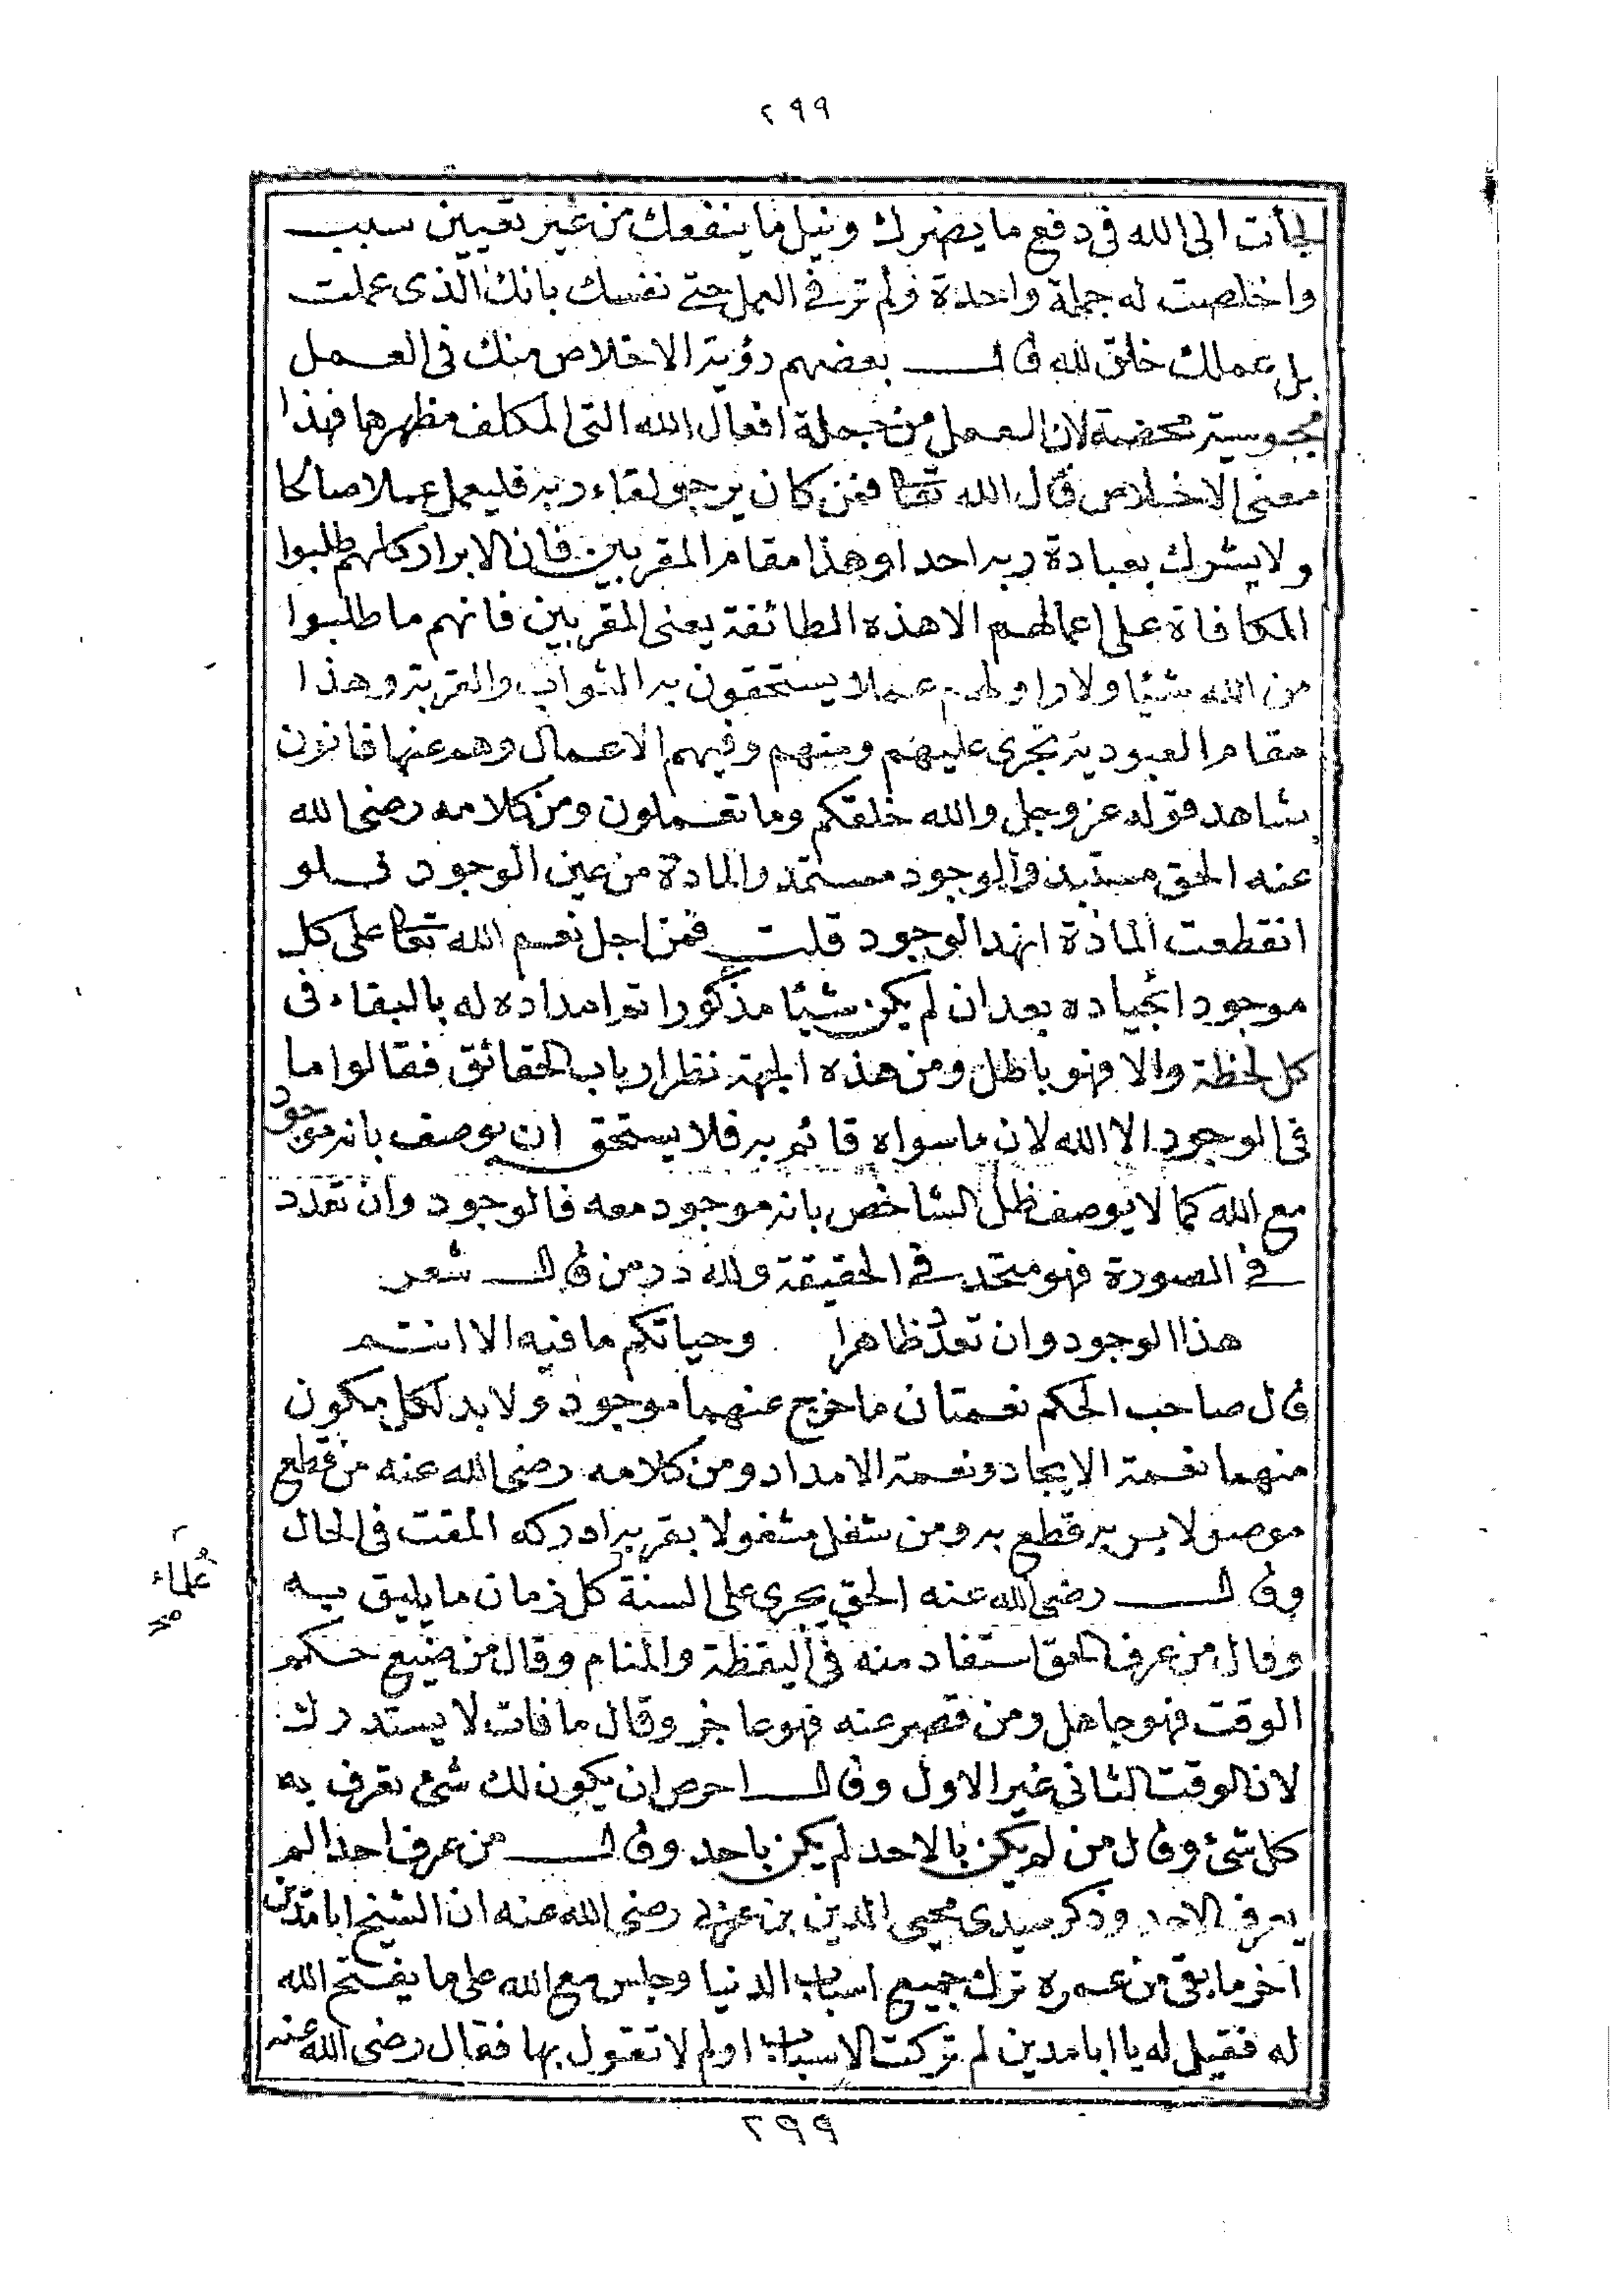 ٢٩٩
لجأت الى الله فى دفع ما يضرك ونيل ما ينفعك من غير تعيين سبب
واخلصت له جملة واحدة ولم تر فى العمل حتى نفسك بانك الذى عملت
بل عملك خلق لله قال بعضهم رؤية الاخلاص منك فى العمل
مجوسية محضة لان العمل من جملة افعال الله التى المكلف مظهرها فهذا
معنى الاخلاص قال الله تعا فمن كان يرجو لقاء ربه فليعمل عملا صالحا
ولا يشرك بعبادة ربه احدا وهذا مقام المقربين فان الابرار كلهم طلبوا
المكافاة على اعمالهم الا هذه الطائفة يعنى المقربين فانهم ما طلبوا
من الله شيئا ولا راوا لهم عملا يستحقون به الثواب والقربة وهذا
مقام العبودية تجرى عليهم ومنهم وفيهم الاعمال وهم عنها فانون
بشاهد قوله عز وجل والله خلقكم وما تعملون ومن كلامه رضى الله
عنه الحق مستبد والوجود مستمد والمادة من عين الوجود فلو
انقطعت المادة انهد الوجود قلت فمن اجل نعم الله تعا على كل
موجود ايجاده بعد ان لم يكن شيئا مذكورا ثم امداده له بالبقاء فى
كل لحظة والا فهو باطل ومن هذه الجهة نظر ارباب الحقائق فقالوا ما
فى الوجود الا الله لان ما سواه قائم به فلا يستحق ان يوصف بانه موجود
مع الله كما لا يوصف ظل الشاخص بانه موجود معه فالوجود وان تعدد
فى الصورة فهو متحد فى الحقيقة ولله در من قال شعر
هذا الوجود وان تعدد ظاهرا وحياتكم ما فيه الا انتم
قال صاحب الحكم نعمتان ما خرج عنهما موجود ولا بد لكل مكون
منهما نعمة الايجاد ونعمة الامداد ومن كلامه رضى الله عنه من قطع
موصولا بربه قطع به ومن شغل مشغولا بقربه ادركه المقت فى الحال
وقال رضى الله عنه الحق يجرى على السنة كل زمان ما يليق به
علماء
صح
وقال من عرف الحق استفاد منه فى اليقظة والمنام وقال من ضيع حكم
الوقت فهو جاهل ومن قصر عنه فهو عاجز وقال ما فات لا يستدرك
لان الوقت الثانى غير الاول وقال احرص ان يكون لك شئ تعرف به
كل شئ وقال من لم يكن بالاحد لم يكن باحد وقال من عرف احدا لم
يعرف الاحد وذكر سيدى محيى الدين بن عربى رضى الله عنه ان الشيخ ابا مدين
اخر ما بقى من عمره ترك جميع اسباب الدنيا وجلس مع الله على ما يفتح الله
له فقيل له يا ابا مدين لم تركت الاسباب او لم لا تقول بها فقال رضى الله عنه
٢٩٩